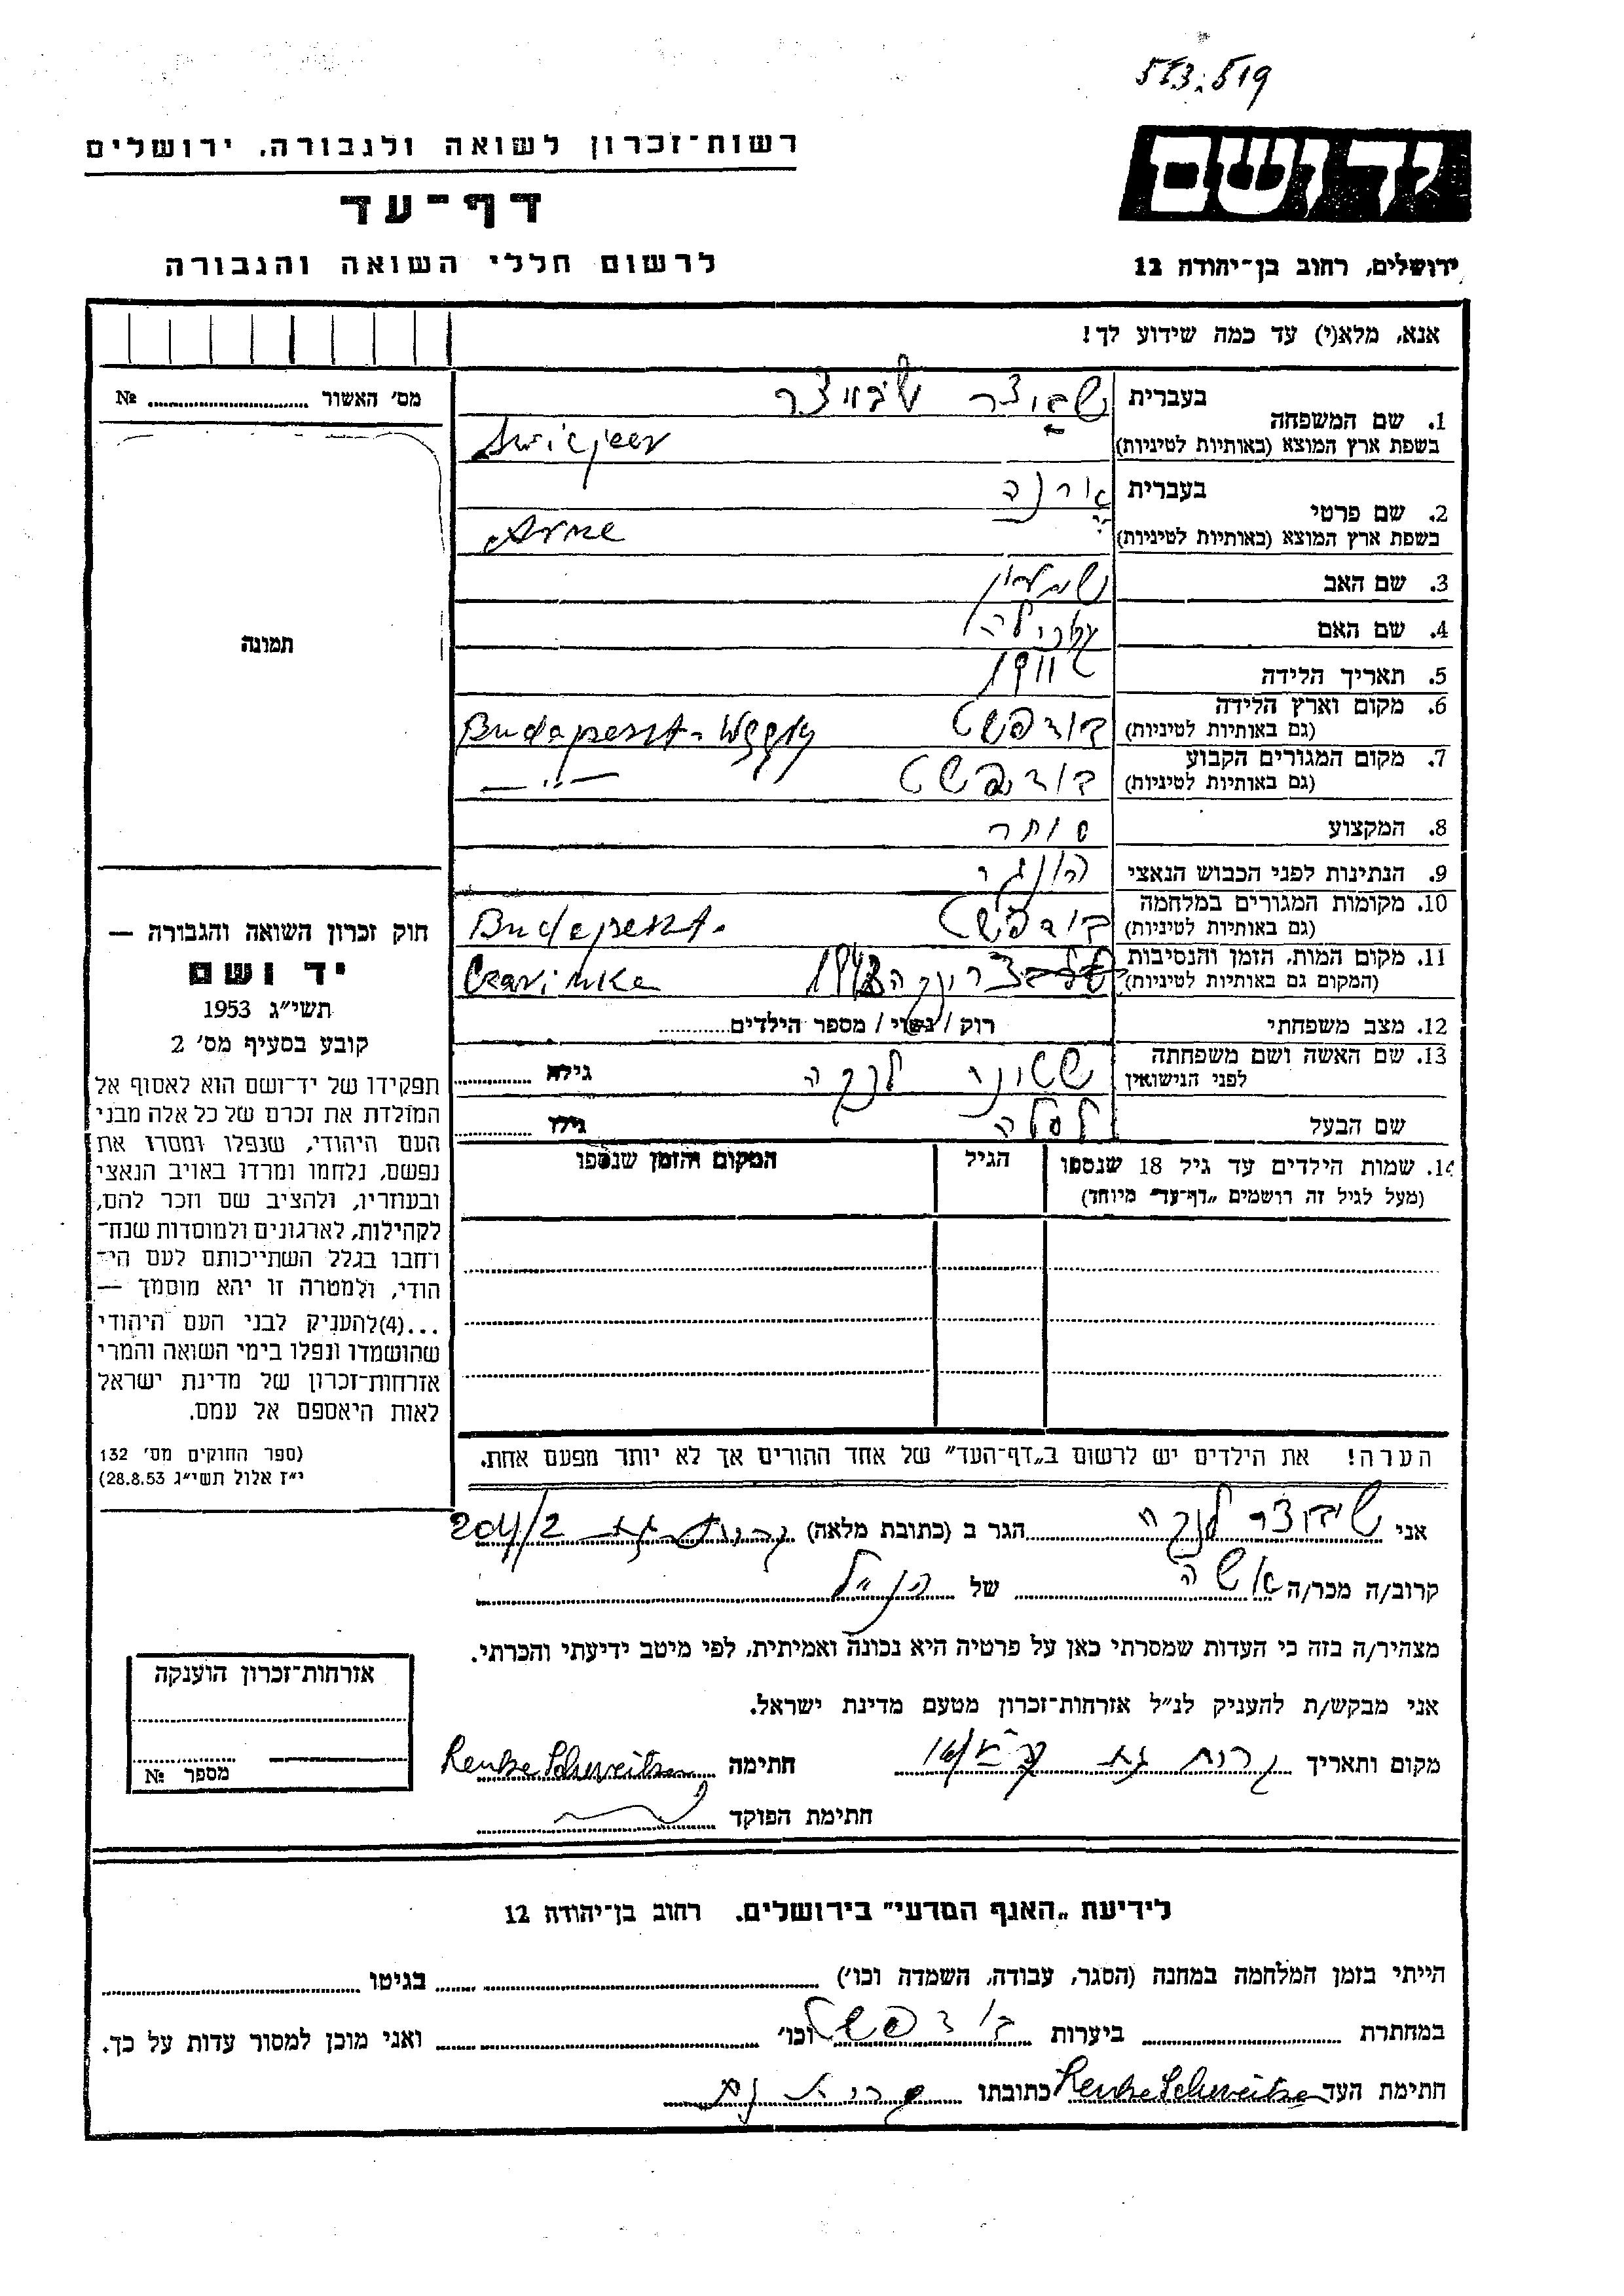 513.519
רשות־זכרון לשואה ולגבורה, ירושלים
דף־עד
לרשום חללי השואה והגבורה
יד ושם
ירושלים, רחוב בן־יהודה 12
אנא, מלא(י) עד כמה שידוע לך!
מס׳ האשור № ..........
תמונה
1. שם המשפחה
בעברית
שבוצר שבויצר
בשפת ארץ המוצא (באותיות לטיניות)
2. שם פרטי
בעברית
ארנה
בשפת ארץ המוצא (באותיות לטיניות) Arne
3. שם האב שמעון
4. שם האם
5. תאריך הלידה 1911
6. מקום וארץ הלידה
(גם באותיות לטיניות)
בודפשט Budapest -
7. מקום המגורים הקבוע
(גם באותיות לטיניות)
בודפשט — ״ —
8. המקצוע סוחר
9. הנתינות לפני הכבוש הנאצי הונגרי
10. מקומות המגורים במלחמה
(גם באותיות לטיניות)
בודפשט Budapest.
11. מקום המות, הזמן והנסיבות
(המקום גם באותיות לטיניות)
1943
12. מצב משפחתי רוק / נשוי / מספר הילדים..........
13. שם האשה ושם משפחתה
לפני הנישואין
לנקה גילה ..........
שם הבעל גילו ..........
14. שמות הילדים עד גיל 18 שנספו
(מעל לגיל זה רושמים „דף־עד״ מיוחד)
הגיל
המקום והזמן שנספו
חוק זכרון השואה והגבורה —
יד ושם
תשי״ג 1953
קובע בסעיף מס׳ 2
תפקידו של יד־ושם הוא לאסוף אל
המולדת את זכרם של כל אלה מבני
העם היהודי, שנפלו ומסרו את
נפשם, נלחמו ומרדו באויב הנאצי
ובעוזריו, ולהציב שם וזכר להם,
לקהילות, לארגונים ולמוסדות שנח־
רחבו בגלל השתייכותם לעם הי־
הודי, ולמטרה זו יהא מוסמך —
...(4)להעניק לבני העם היהודי
שהושמדו ונפלו בימי השואה והמרי
אזרחות־זכרון של מדינת ישראל
לאות היאספם אל עמם.
(ספר החוקים מס׳ 132
י״ז אלול תשי״ג 28.8.53)
הערה! את הילדים יש לרשום ב„דף־העד״ של אחד ההורים אך לא יותר מפעם אחת.
אני שבוצר לנקה הגר ב (כתובת מלאה) 204/2
קרוב/ה מכר/ה אשה של הנ״ל
מצהיר/ה בזה כי העדות שמסרתי כאן על פרטיה היא נכונה ואמיתית, לפי מיטב ידיעתי והכרתי.
אני מבקש/ת להעניק לנ״ל אזרחות־זכרון מטעם מדינת ישראל.
מקום ותאריך חתימה Lenke Schweitzer
חתימת הפוקד
אזרחות־זכרון הוענקה
מספר №
לידיעת „האגף המדעי״ בירושלים. רחוב בן־יהודה 12
הייתי בזמן המלחמה במחנה (הסגר, עבודה, השמדה וכו׳) .......... בגיטו ..........
במחתרת .......... ביערות בודפשט וכו׳ .......... ואני מוכן למסור עדות על כך.
חתימת העד Lenke Schweitzer כתובתו